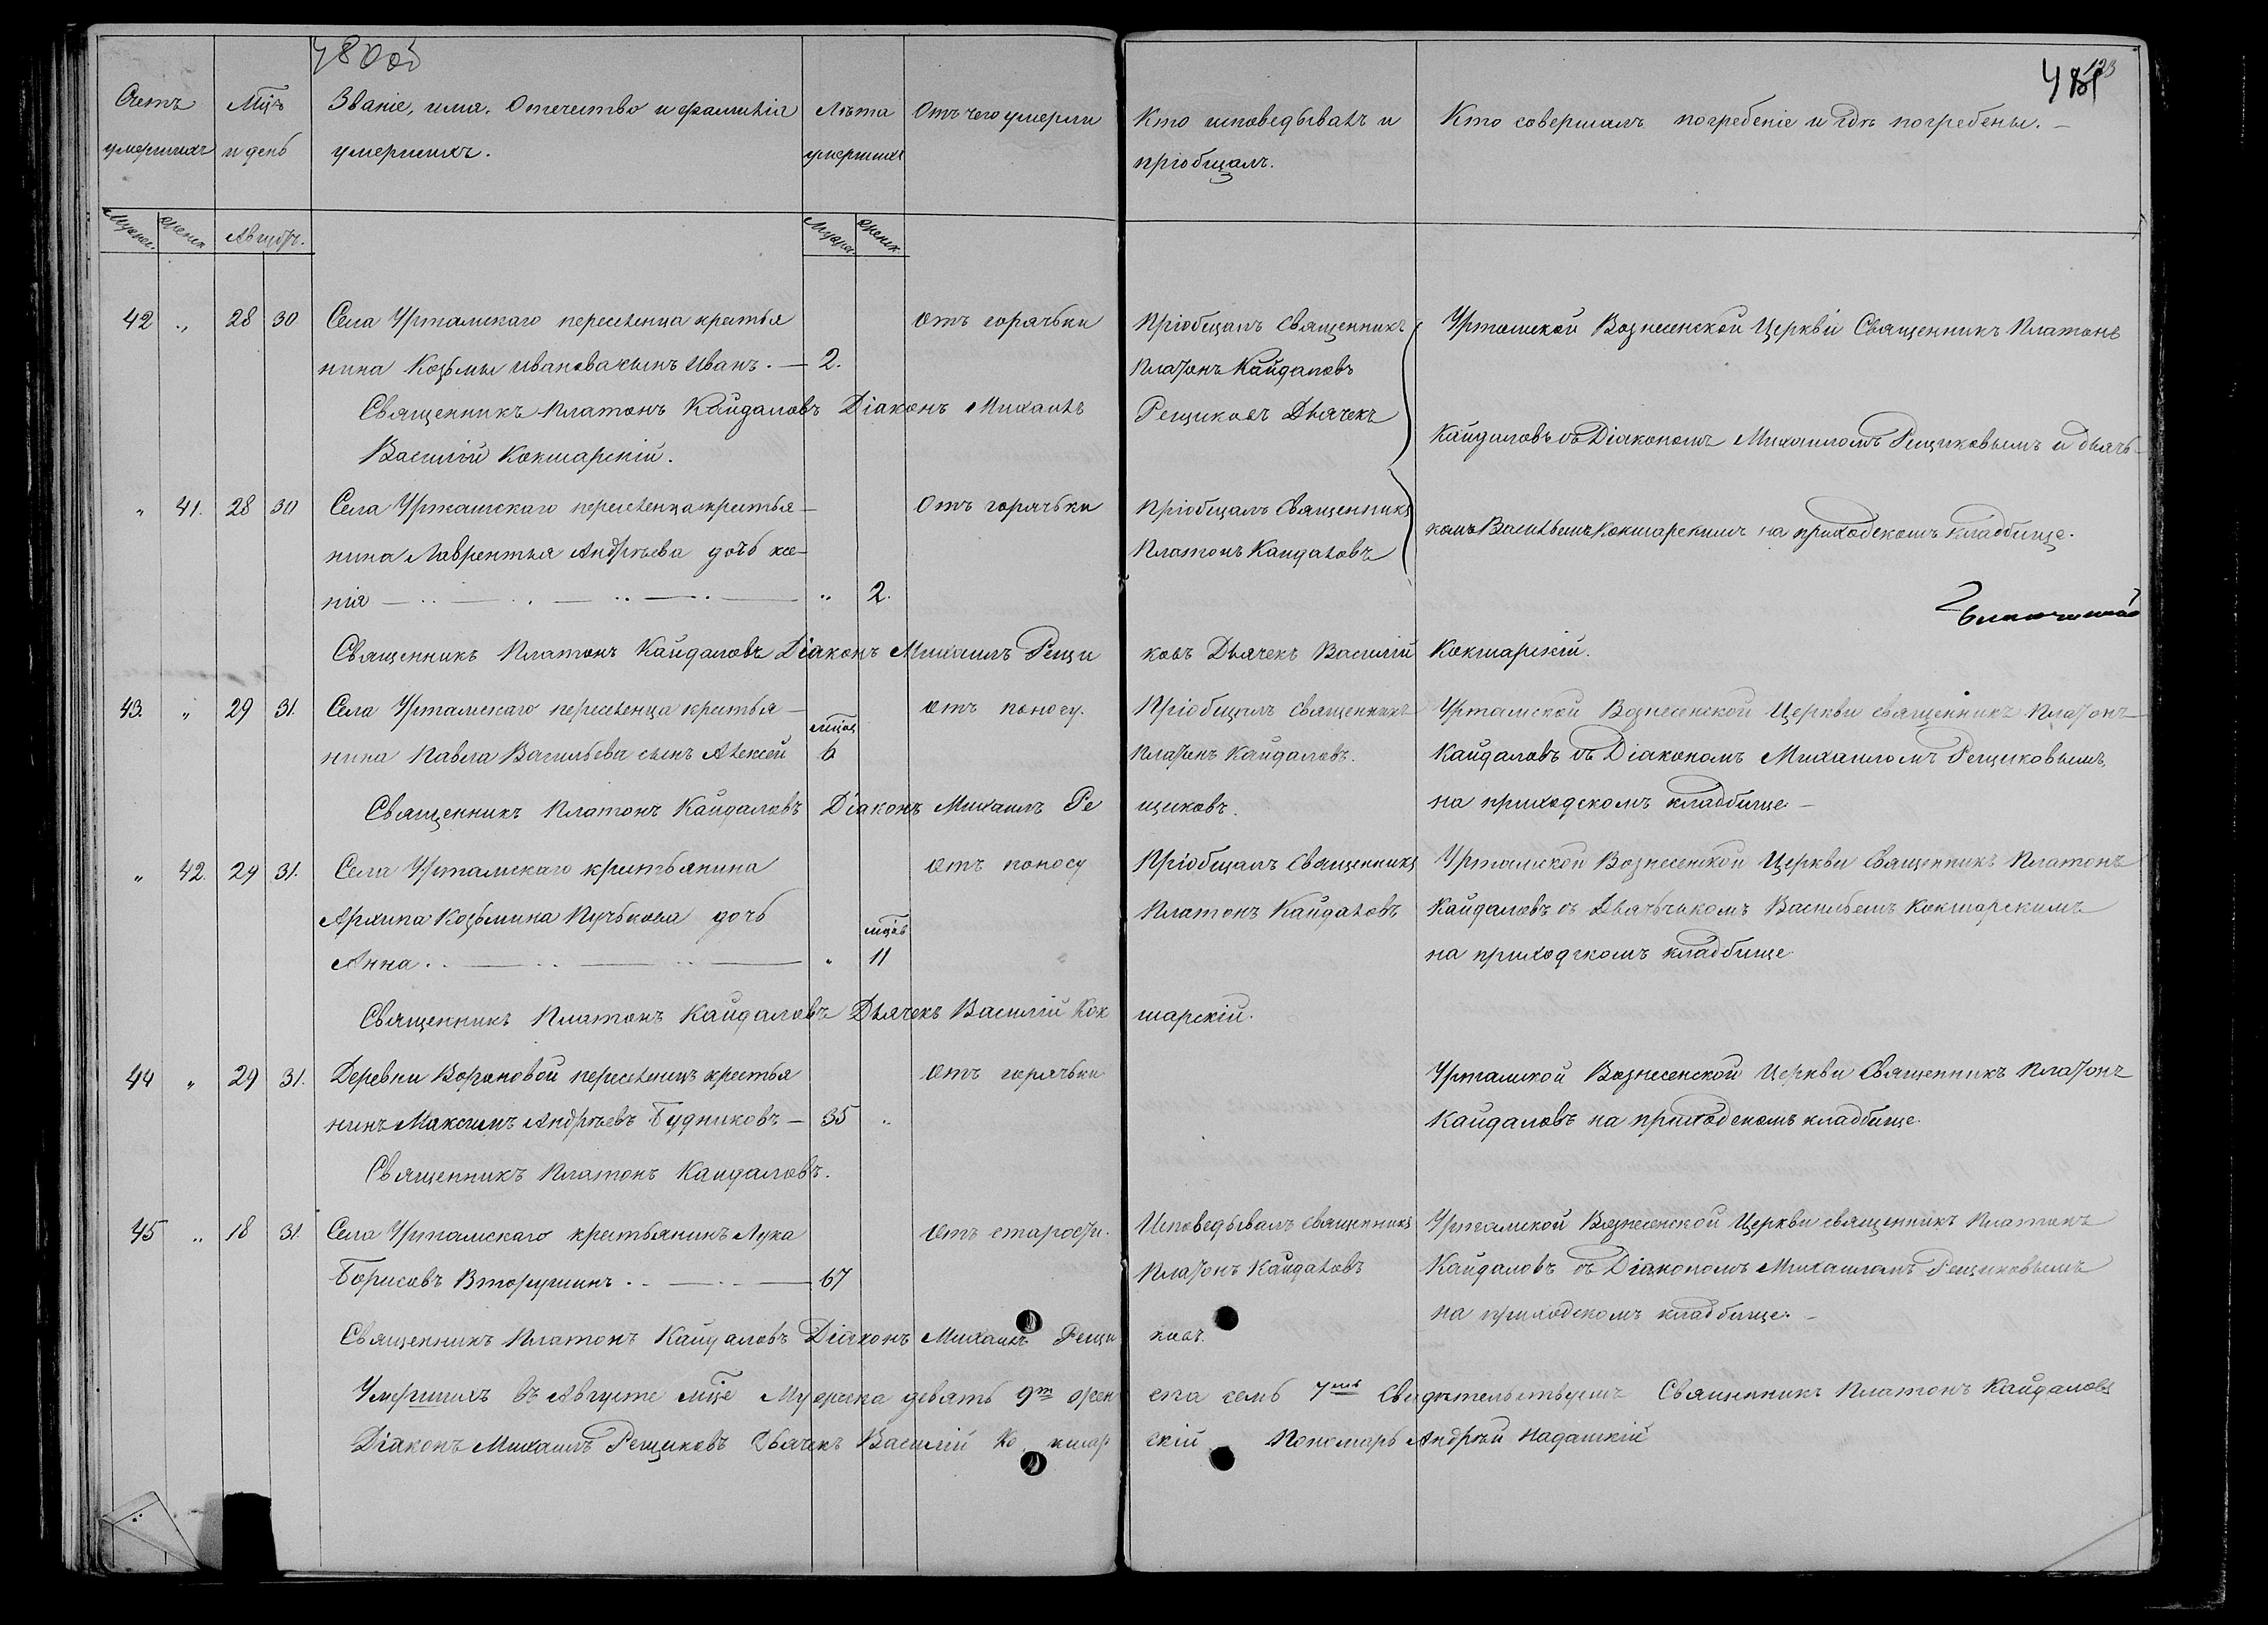 480 об
Счетъ умершихъ
Мцъ и день
Званіе, имя, Отечество и фамилія умершихъ.
Лѣта умершихъ
Отъ чего умерли
Кто исповедывалъ и пріобщалъ.
Кто совершалъ погребеніе и гдѣ погребены. —
481
123
Мужес.
Женск.
Августъ.
Мужес.
Женск.
42 „ 28 30 Села Уртамскаго переселенца крестья Отъ горячьки Пріобщалъ Священникъ Уртамской Вознесенской Церкви Священникъ Платонъ
нина Козьмы иванова сынъ Иванъ. — 2. Платонъ Кайдаловъ
Священникъ Платонъ Кайдаловъ Діаконъ Михаилъ Рещиковъ Дьячекъ
Кайдаловъ съ Діакономъ Михаиломъ Рещиковымъ и дьячь-
Василій Кокшарскій.
„ 41. 28 30 Села Уртамскаго переселенца крестья- Отъ горячьки Пріобщалъ Священникъ
комъ Васильемъ Кокшарскимъ на приходскомъ кладбище.
нина Лаврентья Андрѣева дочь ксе- Платонъ Кайдаловъ
нія — „ 2.
Священникъ Платонъ Кайдаловъ Діаконъ Михаилъ Рещи ковъ Дьячекъ Василій Кокшарскій.
43. „ 29 31. Села Уртамскаго переселенца крестья- Отъ поносу. Пріобщалъ священникъ Уртамской Вознесенской Церкви священникъ Платонъ
мцовъ
нина Павла Васильева сынъ Алексей 6 Платонъ Кайдаловъ. Кайдаловъ съ Діакономъ Михаиломъ Рещиковымъ,
Священникъ Платонъ Кайдаловъ Діаконъ Михаилъ Ре щиковъ. на приходскомъ кладбище. —
„ 42. 29 31. Села Уртамскаго крестьянина Отъ поносу Пріобщалъ Священникъ Уртамской Вознесенской Церкви Священникъ Платонъ
Архипа Козьмина Пучькова дочь Платонъ Кайдаловъ Кайдаловъ съ Дьячьчькомъ Васильемъ Кокшарскимъ
мцовъ
Анна. „ 11 на приходскомъ кладбище
Священникъ Платонъ Кайдаловъ Дьячекъ Василій Кок шарскій.
44 „ 29 31. Деревни Вороновой переселенецъ крестья Отъ горячьки Уртамской Вознесенской Церкви Священникъ Платонъ
нинъ Максимъ Андрѣевъ Будниковъ — 35 „ Кайдаловъ на приходскомъ кладбище.
Священникъ Платонъ Кайдаловъ.
45 „ 18 31. Села Уртамскаго крестьянинъ Лука Отъ старости. Исповедывалъ священникъ Уртамской Вознесенской Церкви священникъ Платонъ
Борисовъ Вторушинъ. — 67 Платонъ Кайдаловъ Кайдаловъ съ Діакономъ Михаиломъ Рещиковымъ
на приходскомъ кладбище. —
Священникъ Платонъ Кайдаловъ Діаконъ Михаилъ Рещи ковъ.
Умершихъ въ Августе мце Мужеска девять 9ть женска семь 7мь Свидѣтельствуемъ Священникъ Платонъ Кайдаловъ
Діаконъ Михаилъ Рещиковъ Дьячекъ Василій Кокшарскій Пономарь Андрѣй Надашкій